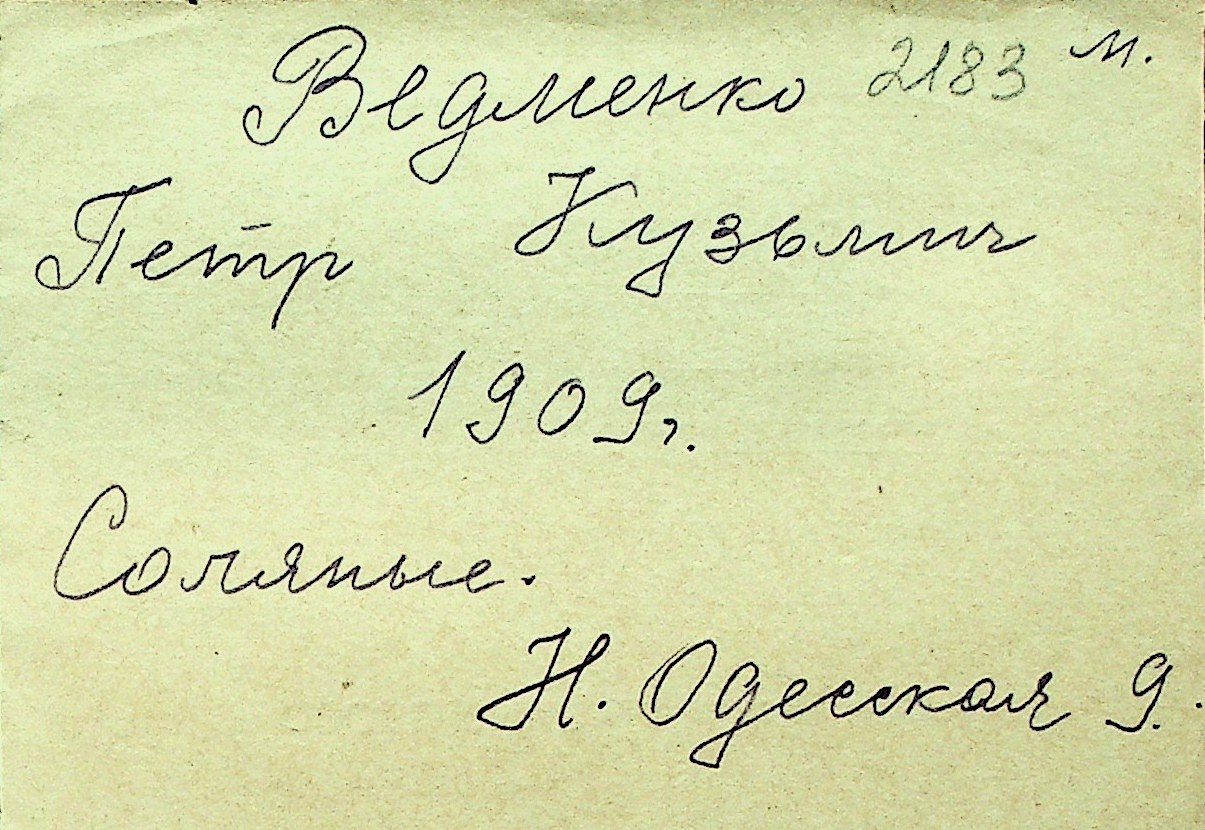 Ведменко 2183 м.
Петр Кузьмич
1909г.
Соляные.
Н. Одесская 9.